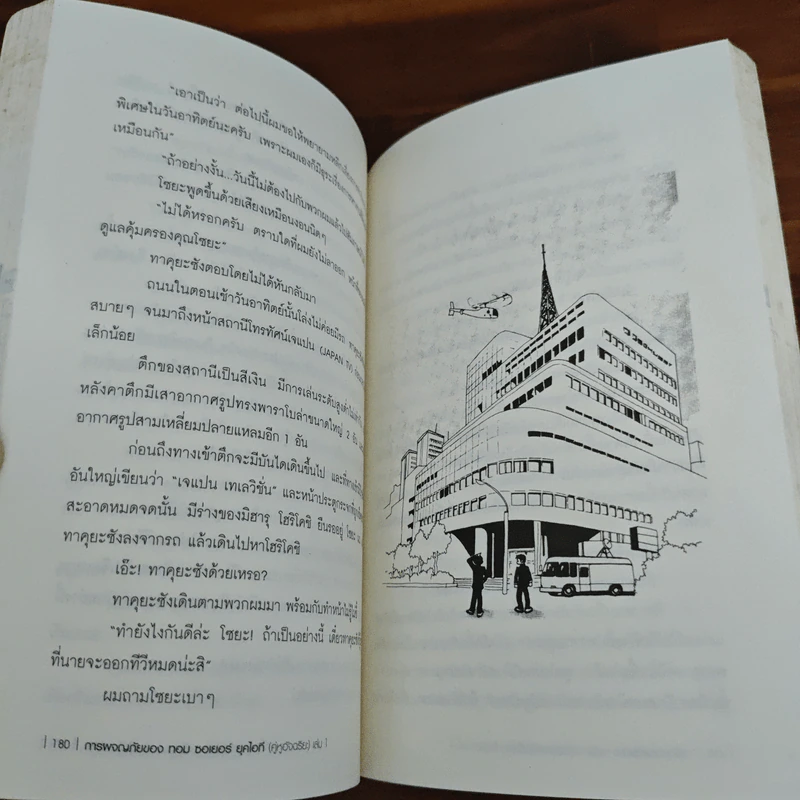 "เอาเป็นว่า ต่อไปนี้ผมขอให้พยายามหลีกเลี่ยง
พิเศษในวันอาทิตย์นะครับ เพราะผมเองก็มีธุระ
เหมือนกัน"
"ถ้าอย่างงั้น...วันนี้ไม่ต้องไปกับพวกผมแล้ว
โซยะพูดขึ้นด้วยเสียงเหมือนงอนนิดๆ
"ไม่ได้หรอกครับ ตราบใดที่ผมยังไม่ลาออก
ดูแลคุ้มครองคุณโซยะ"
ทาคุยะซังตอบโดยไม่ได้หันกลับมา
ถนนในตอนเช้าวันอาทิตย์นั้นโล่งไม่ค่อยมีรถ
สบายๆ จนมาถึงหน้าสถานีโทรทัศน์เจแปน (JAPAN
เล็กน้อย
ตึกของสถานีเป็นสีเงิน มีการเล่นระดับสูงต่ำ
หลังคาตึกมีเสาอากาศรูปทรงพาราโบล่าขนาดใหญ่ 2
อากาศรูปสามเหลี่ยมปลายแหลมอีก 1 อัน
ก่อนถึงทางเข้าตึกจะมีบันไดเดินขึ้นไป
อันใหญ่เขียนว่า "เจแปน เทเลวิชั่น" และหน้าประตูกระจก
สะอาดหมดจดนั้น มีร่างของมิฮารุ โฮริโคชิ ยืนรออยู่ โซยะ
ทาคุยะซังลงจากรถ แล้วเดินไปหาโฮริโคชิ
เอ๊ะ! ทาคุยะซังด้วยเหรอ?
ทาคุยะซังเดินตามพวกผมมา พร้อมกับทำหน้าไม่รู้ไม่ชี้
"ทำยังไงกันดีล่ะ โซยะ! ถ้าเป็นอย่างนี้ เดี๋ยวทาคุยะซัง
ที่นายจะออกทีวีหมดน่ะสิ"
ผมถามโซยะเบาๆ
| 180 | การผจญภัยของ ทอม ซอเยอร์ ยุคไอที (คู่หูอัจฉริยะ) เล่ม 1